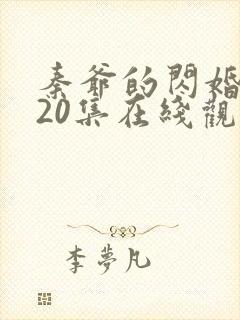 秦爺的閃婚
20集在綫觀
李夢凡